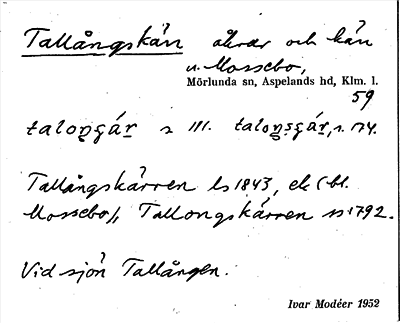 Tallångskärr åkrar och kärr
u. Mossebo,
Mörlunda sn, Aspelands hd, Klm. l.
59
taloŋgár s 111. taloŋsgár, s. 174.
Tallångskärren ls 1843, ek (bl.
Mossebo), Tallongskärren ss 1792.
Vid sjön Tallången.
Ivar Modéer 1952